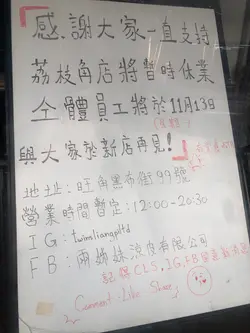 感謝大家一直支持
荔枝角店將暫時休業
全體員工將於11月13日
(星期五)
與大家於新店再見!
地址:旺角黑布街99號
營業時間暫定:12:00-20:30
IG:twimliangpltd
FB:兩姊妹涼皮有限公司
記得CLS,IG,FB留意最新消息
Comment、Like、Share